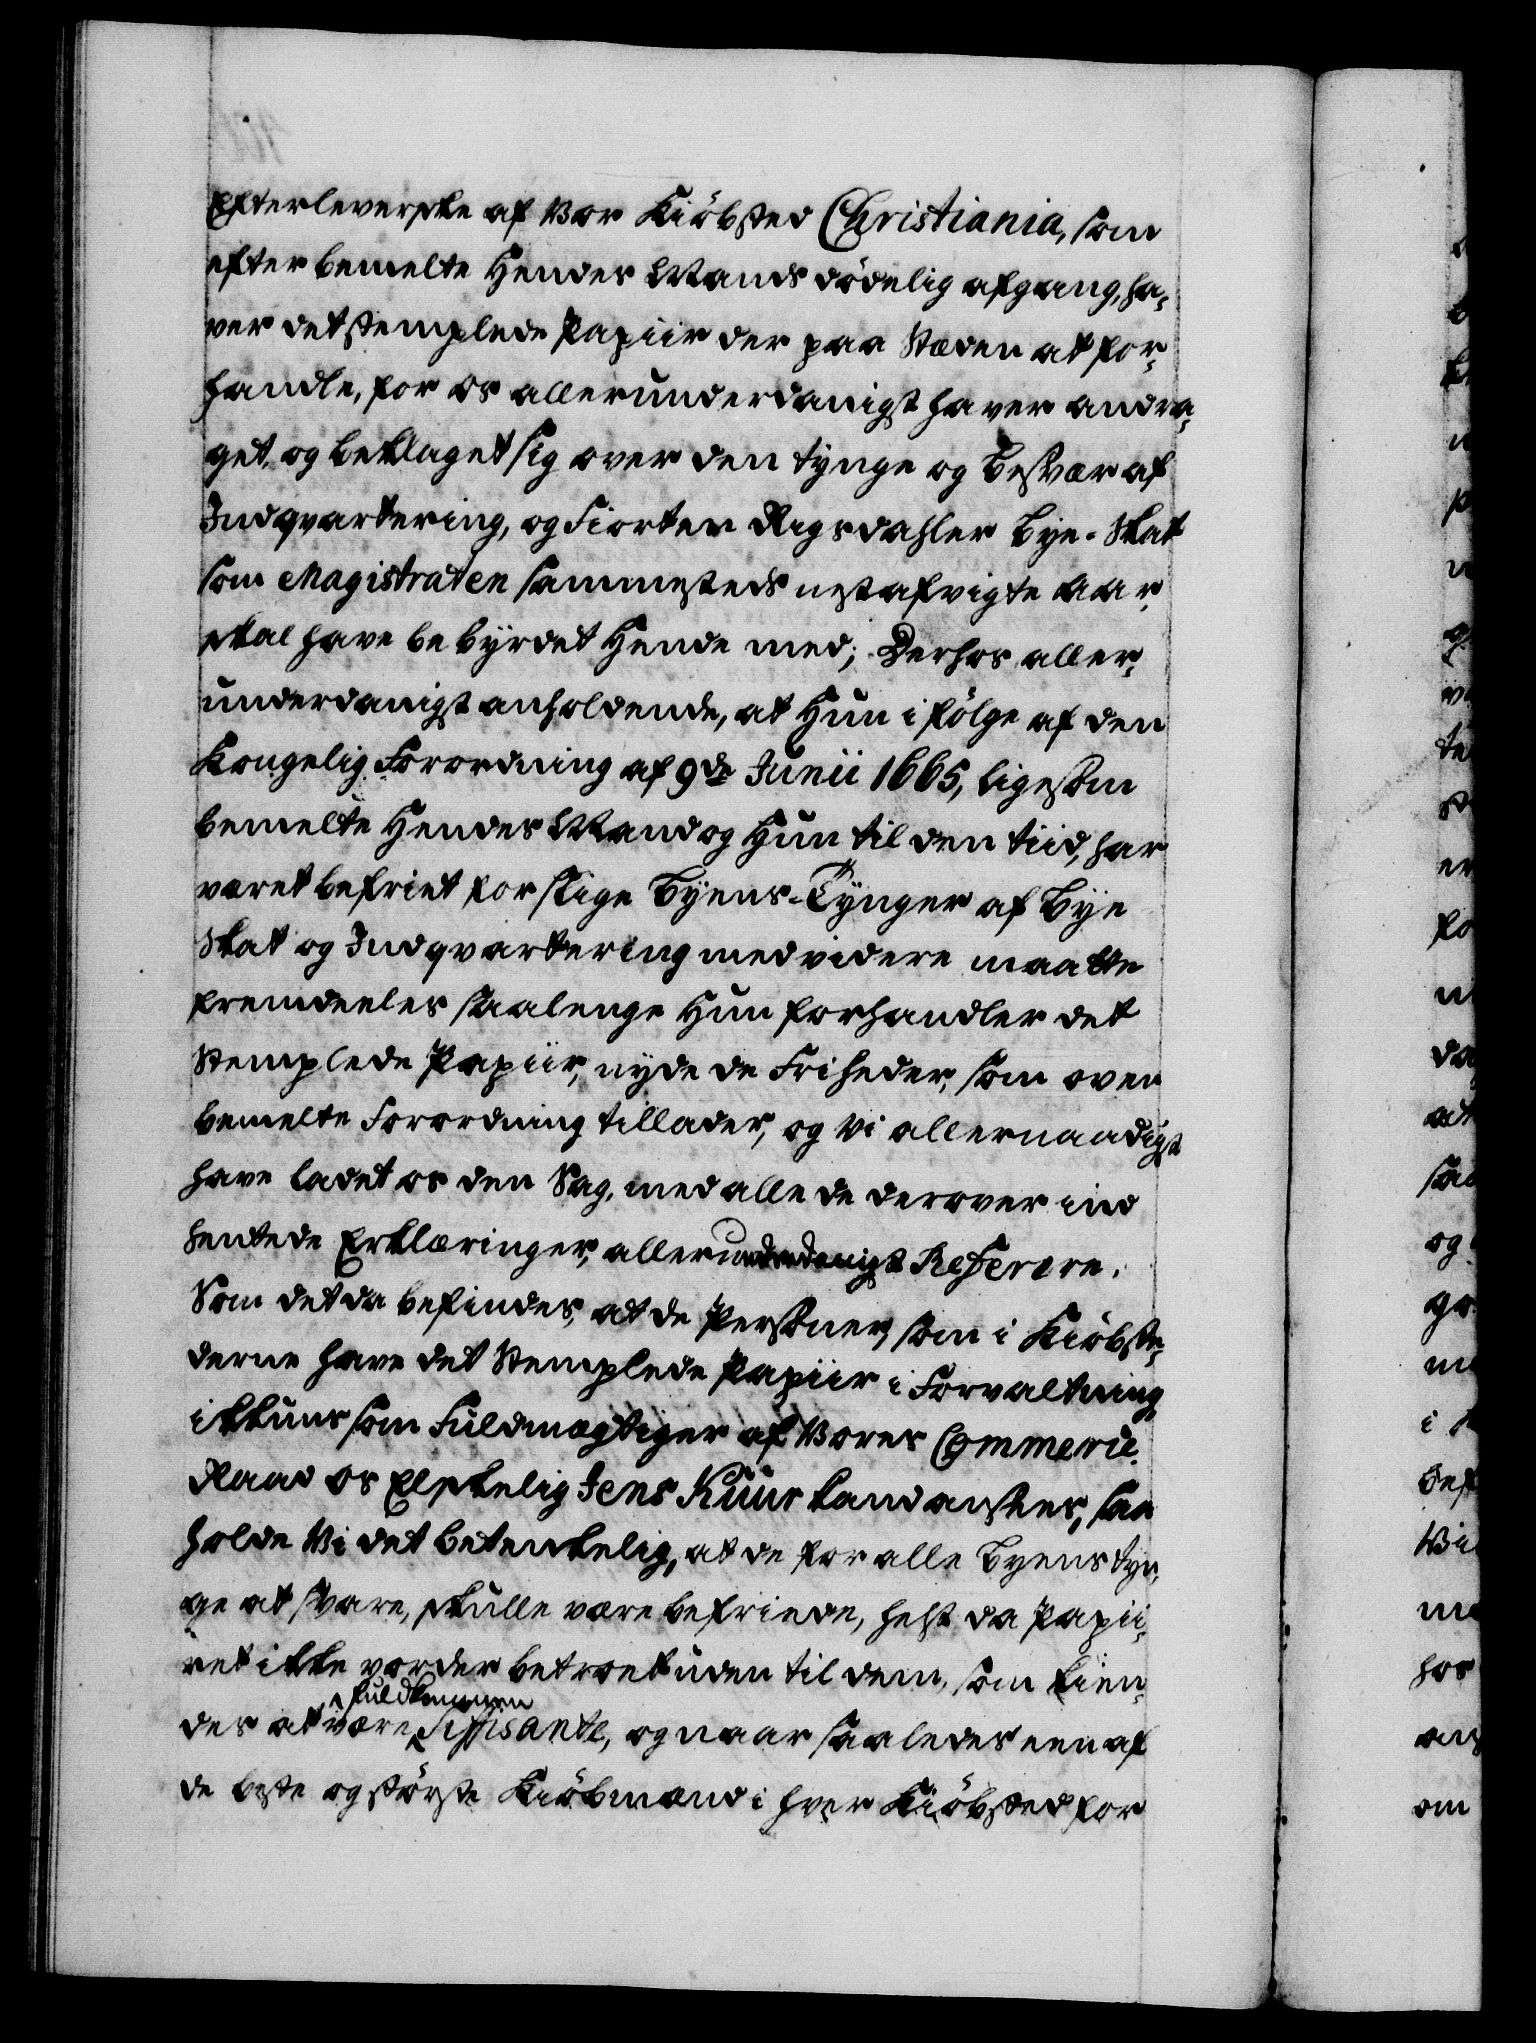 Efterleverske af Vor Kiöbsted Christiania, som
efter bemelte Hendes Mands dödelig afgang, ha-
ver det stemplede Papiir der paa Stæden at for-
handle, for os allerunderdanigst haver andra-
get, og beklaget sig over den tynge og besvær af
Indqvartering, og Fiorten Rigsdahler Bye-Skat
som Magistraten sammesteds nestafvigte Aar
skal have bebyrdet Hende med; Derhos aller-
underdanigst anholdende, at Hun i fölge af den
Kongelig Forordning af 9de Junii 1665, ligesom
bemelte Hendes Mand og Hun til den tiid, har
været befriet for slige Byens-Tynger af Bye
Skat og Indqvartering med videre maatte
fremdeeles saalenge Hun forhandler det
Stemplede Papiir, nyde de Friheder, som oven
bemelte Forordning tillader, og Vi allernaadigst
have ladet os den Sag, med alle de derover ind
hentede Erklæringer, allerunderdanigst Referere.
Som det da befindes, at de Persohner, som i Kiöbste-
derne have det Stemplede Papiir i Forvaltning,
ikkuns som Fuldmægtiger af Vores Commercie-
Raad os Elskelig Jens Kuur kand ansees, saa
holde Vi det betenkelig, at de for alle Byens tyn-
ge at svare, skulle være befriede, helst da Papii-
ret ikke vorder betroet uden til dem, som kien-
des at være fuldkommen Suffisante, og naar saaledes een af
de beste og störste Kiöbmænd i hver Kiöbsted for